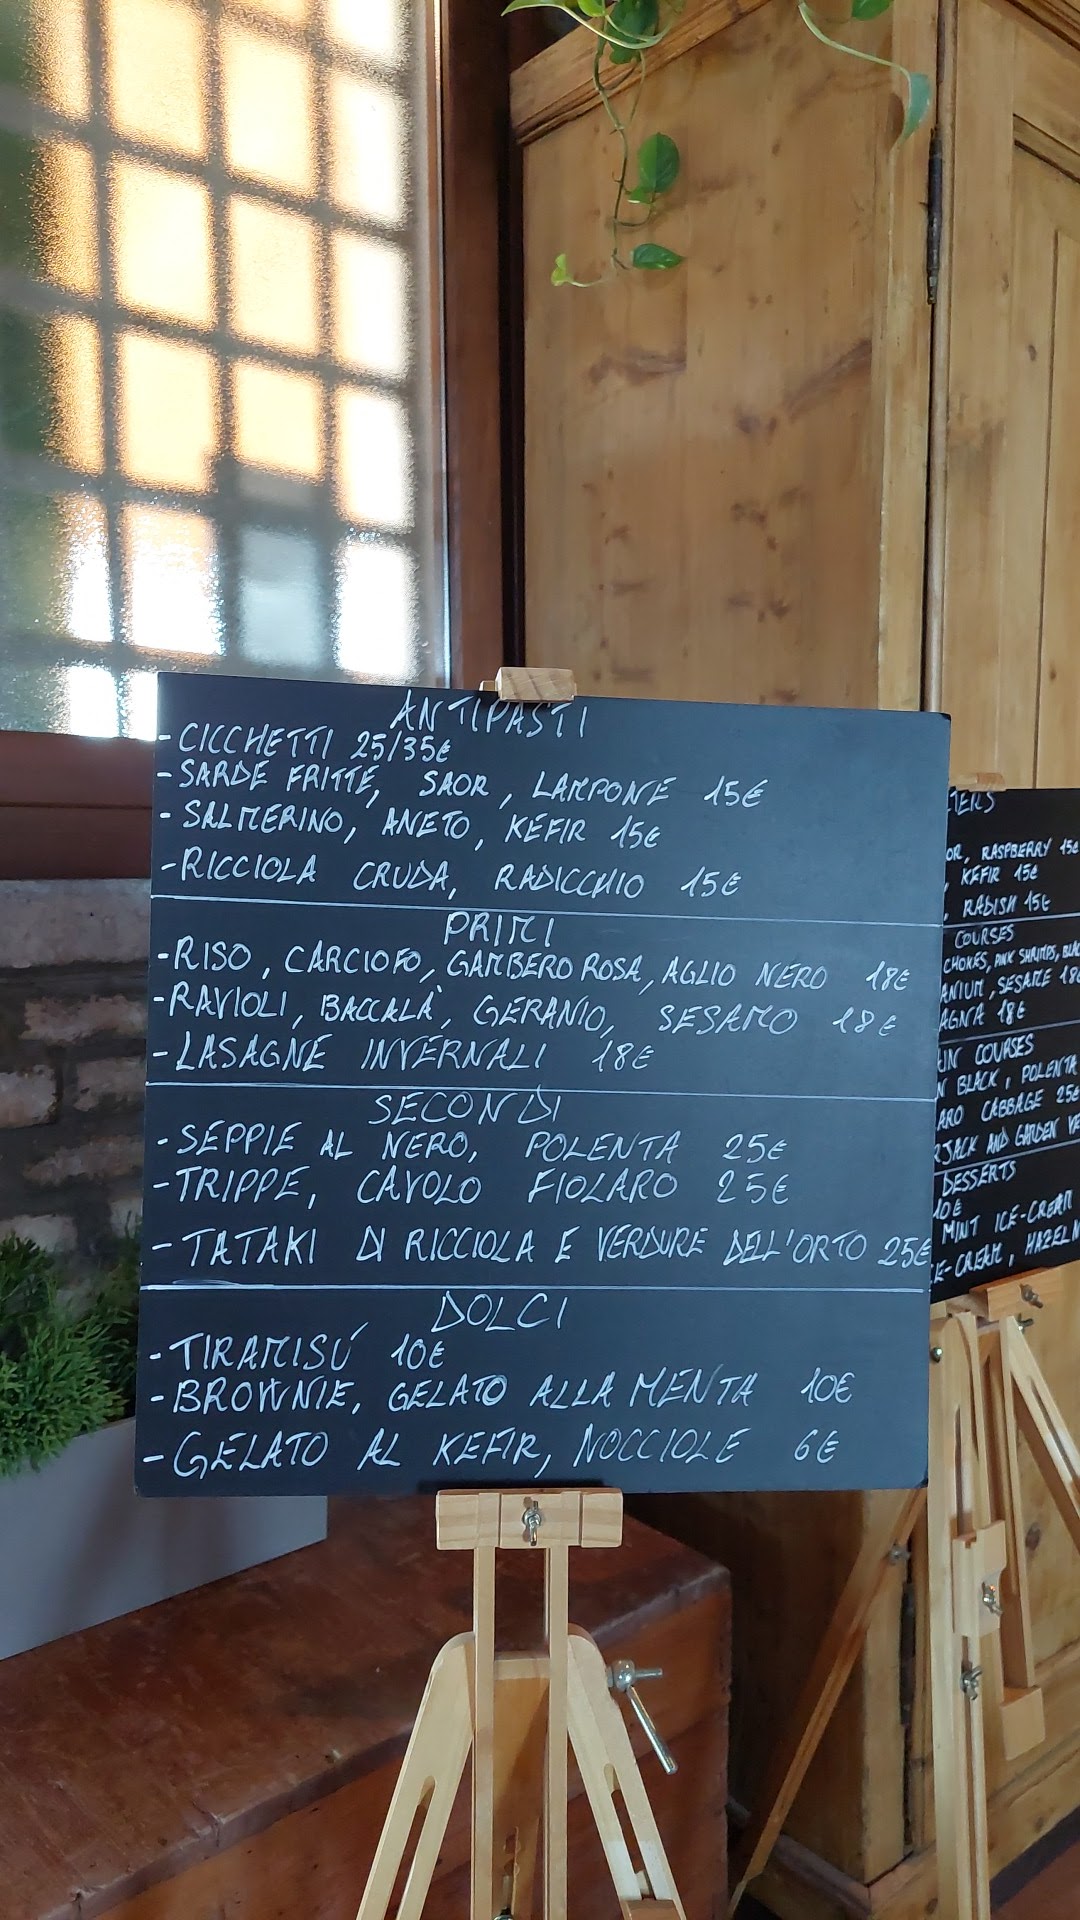 ANTIPASTI
- CICCHETTI 25/35€
- SARDE FRITTE, SAOR, LAMPONE 15€
- SALMERINO, ANETO, KEFIR 15€
- RICCIOLA CRUDA, RADICCHIO 15€
PRIMI
- RISO, CARCIOFO, GAMBERO ROSA, AGLIO NERO 18€
- RAVIOLI, BACCALÀ, GERANIO, SESAMO 18€
- LASAGNE INVERNALI 18€
SECONDI
- SEPPIE AL NERO, POLENTA 25€
- TRIPPE, CAVOLO FIOLARO 25€
- TATAKI DI RICCIOLA E VERDURE DELL'ORTO 25€
DOLCI
- TIRAMISÚ 10€
- BROWNIE, GELATO ALLA MENTA 10€
- GELATO AL KEFIR, NOCCIOLE 6€
RASPBERRY 15€
, KEFIR 15€
, RADISH 15€
COURSES
PINK SHRIMPS,
, SESAME 18€
18€
COURSES
BLACK, POLENTA
CABBAGE 25€
AND GARDEN
DESSERTS
10€
MINT ICE-CREAM